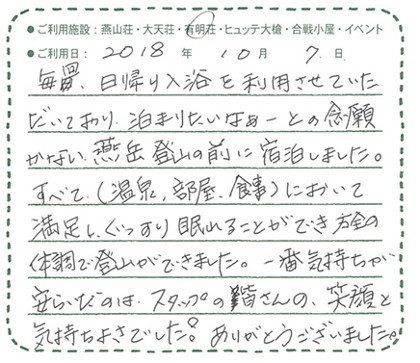 ●ご利用施設：燕山荘・大天荘・有明荘・ヒュッテ大槍・合戦小屋・イベント
●ご利用日：2018年10月7日
毎暑、日帰り入浴を利用させていた
だいており、泊まりたいなぁーとの念願
かない、燕岳登山の前に宿泊しました。
すべて、(温泉、部屋、食事)において
満足し、ぐっすり眠れることができ万全の
体調で登山ができました。一番気持ちが
安らいだのは、スタッフの皆さんの、笑顔と
気持ちよさでした。ありがとうございました。